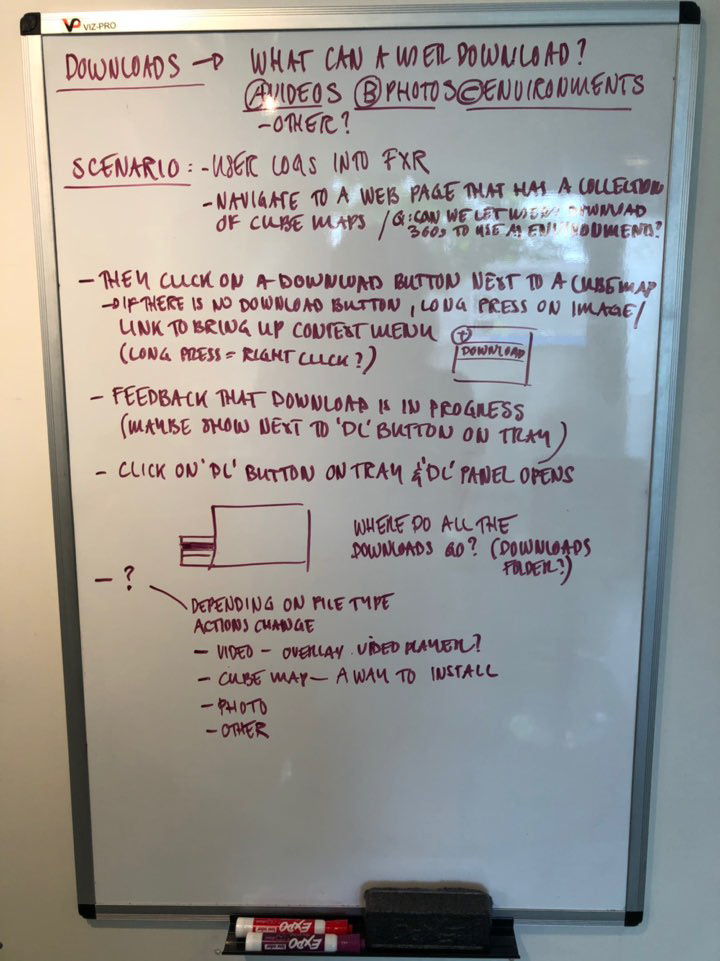 VIZ-PRO
DOWNLOADS → WHAT CAN A USER DOWNLOAD?
Ⓐ VIDEOS Ⓑ PHOTOS Ⓒ ENVIRONMENTS
- OTHER?
SCENARIO: - USER LOGS INTO FXR
- NAVIGATE TO A WEB PAGE THAT HAS A COLLECTION
OF CUBE MAPS / Q: CAN WE LET USERS DOWNLOAD
360s TO USE AS ENVIRONMENTS?
- THEY CLICK ON A DOWNLOAD BUTTON NEXT TO A CUBEMAP
→ IF THERE IS NO DOWNLOAD BUTTON, LONG PRESS ON IMAGE/
LINK TO BRING UP CONTEXT MENU
(LONG PRESS = RIGHT CLICK?)
DOWNLOAD
- FEEDBACK THAT DOWNLOAD IS IN PROGRESS
(MAYBE SHOW NEXT TO 'DL' BUTTON ON TRAY)
- CLICK ON 'DL' BUTTON ON TRAY & 'DL' PANEL OPENS
WHERE DO ALL THE
DOWNLOADS GO? (DOWNLOADS
FOLDER?)
- ?
DEPENDING ON FILE TYPE
ACTIONS CHANGE
- VIDEO - OVERLAY VIDEO PLAYER?
- CUBE MAP - A WAY TO INSTALL
- PHOTO
- OTHER
EXPO
EXPO